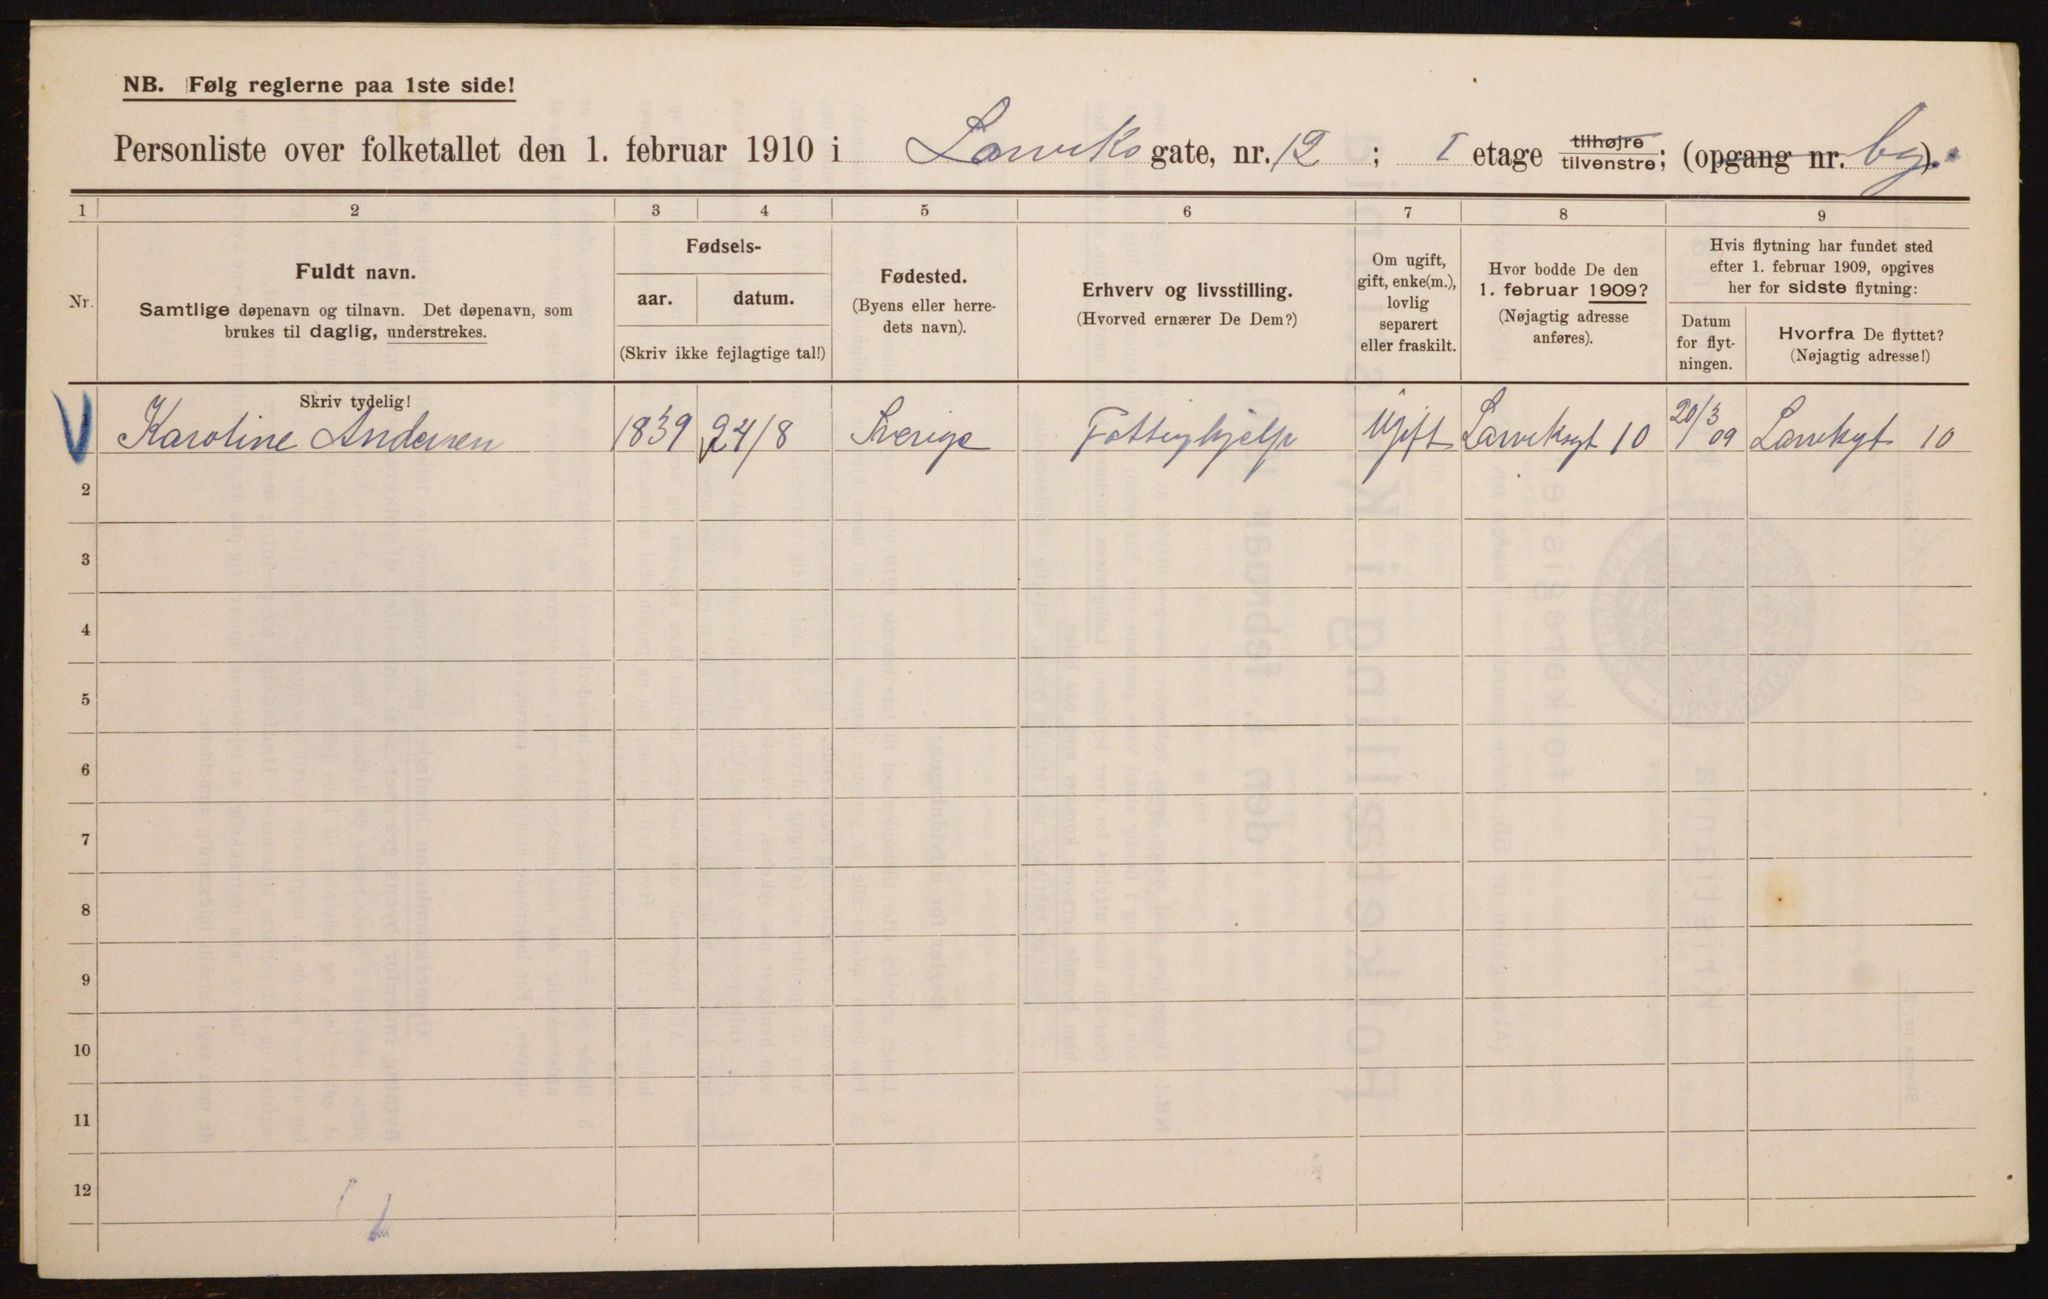 NB. Følg reglerne paa 1ste side!
Personliste over folketallet den 1. februar 1910 i Larviks gate, nr. 12 ; I etage tilhøjre/tilvenstre; (opgang nr. bg.).
1 2 3 4 5 6 7 8 9
Nr.
Fuldt navn.
Samtlige døpenavn og tilnavn. Det døpenavn, som
brukes til daglig, understrekes.
Fødsels-
aar. datum.
(Skriv ikke fejlagtige tal!)
Fødested.
(Byens eller herre-
dets navn).
Erhverv og livsstilling.
(Hvorved ernærer De Dem?)
Om ugift,
gift, enke(m.),
lovlig
separert
eller fraskilt.
Hvor bodde De den
1. februar 1909?
(Nøjagtig adresse
anføres).
Hvis flytning har fundet sted
efter 1. februar 1909, opgives
her for sidste flytning:
Datum
for flyt-
ningen.
Hvorfra De flyttet?
(Nøjagtig adresse!)
Skriv tydelig!
1 Karoline Andersen 1839 24/8 Sverige Fattighjelp Ugift Larviksgt 10 20/3 09 Larvikgt 10
2
3
4
5
6
7
8
9
10
11
12